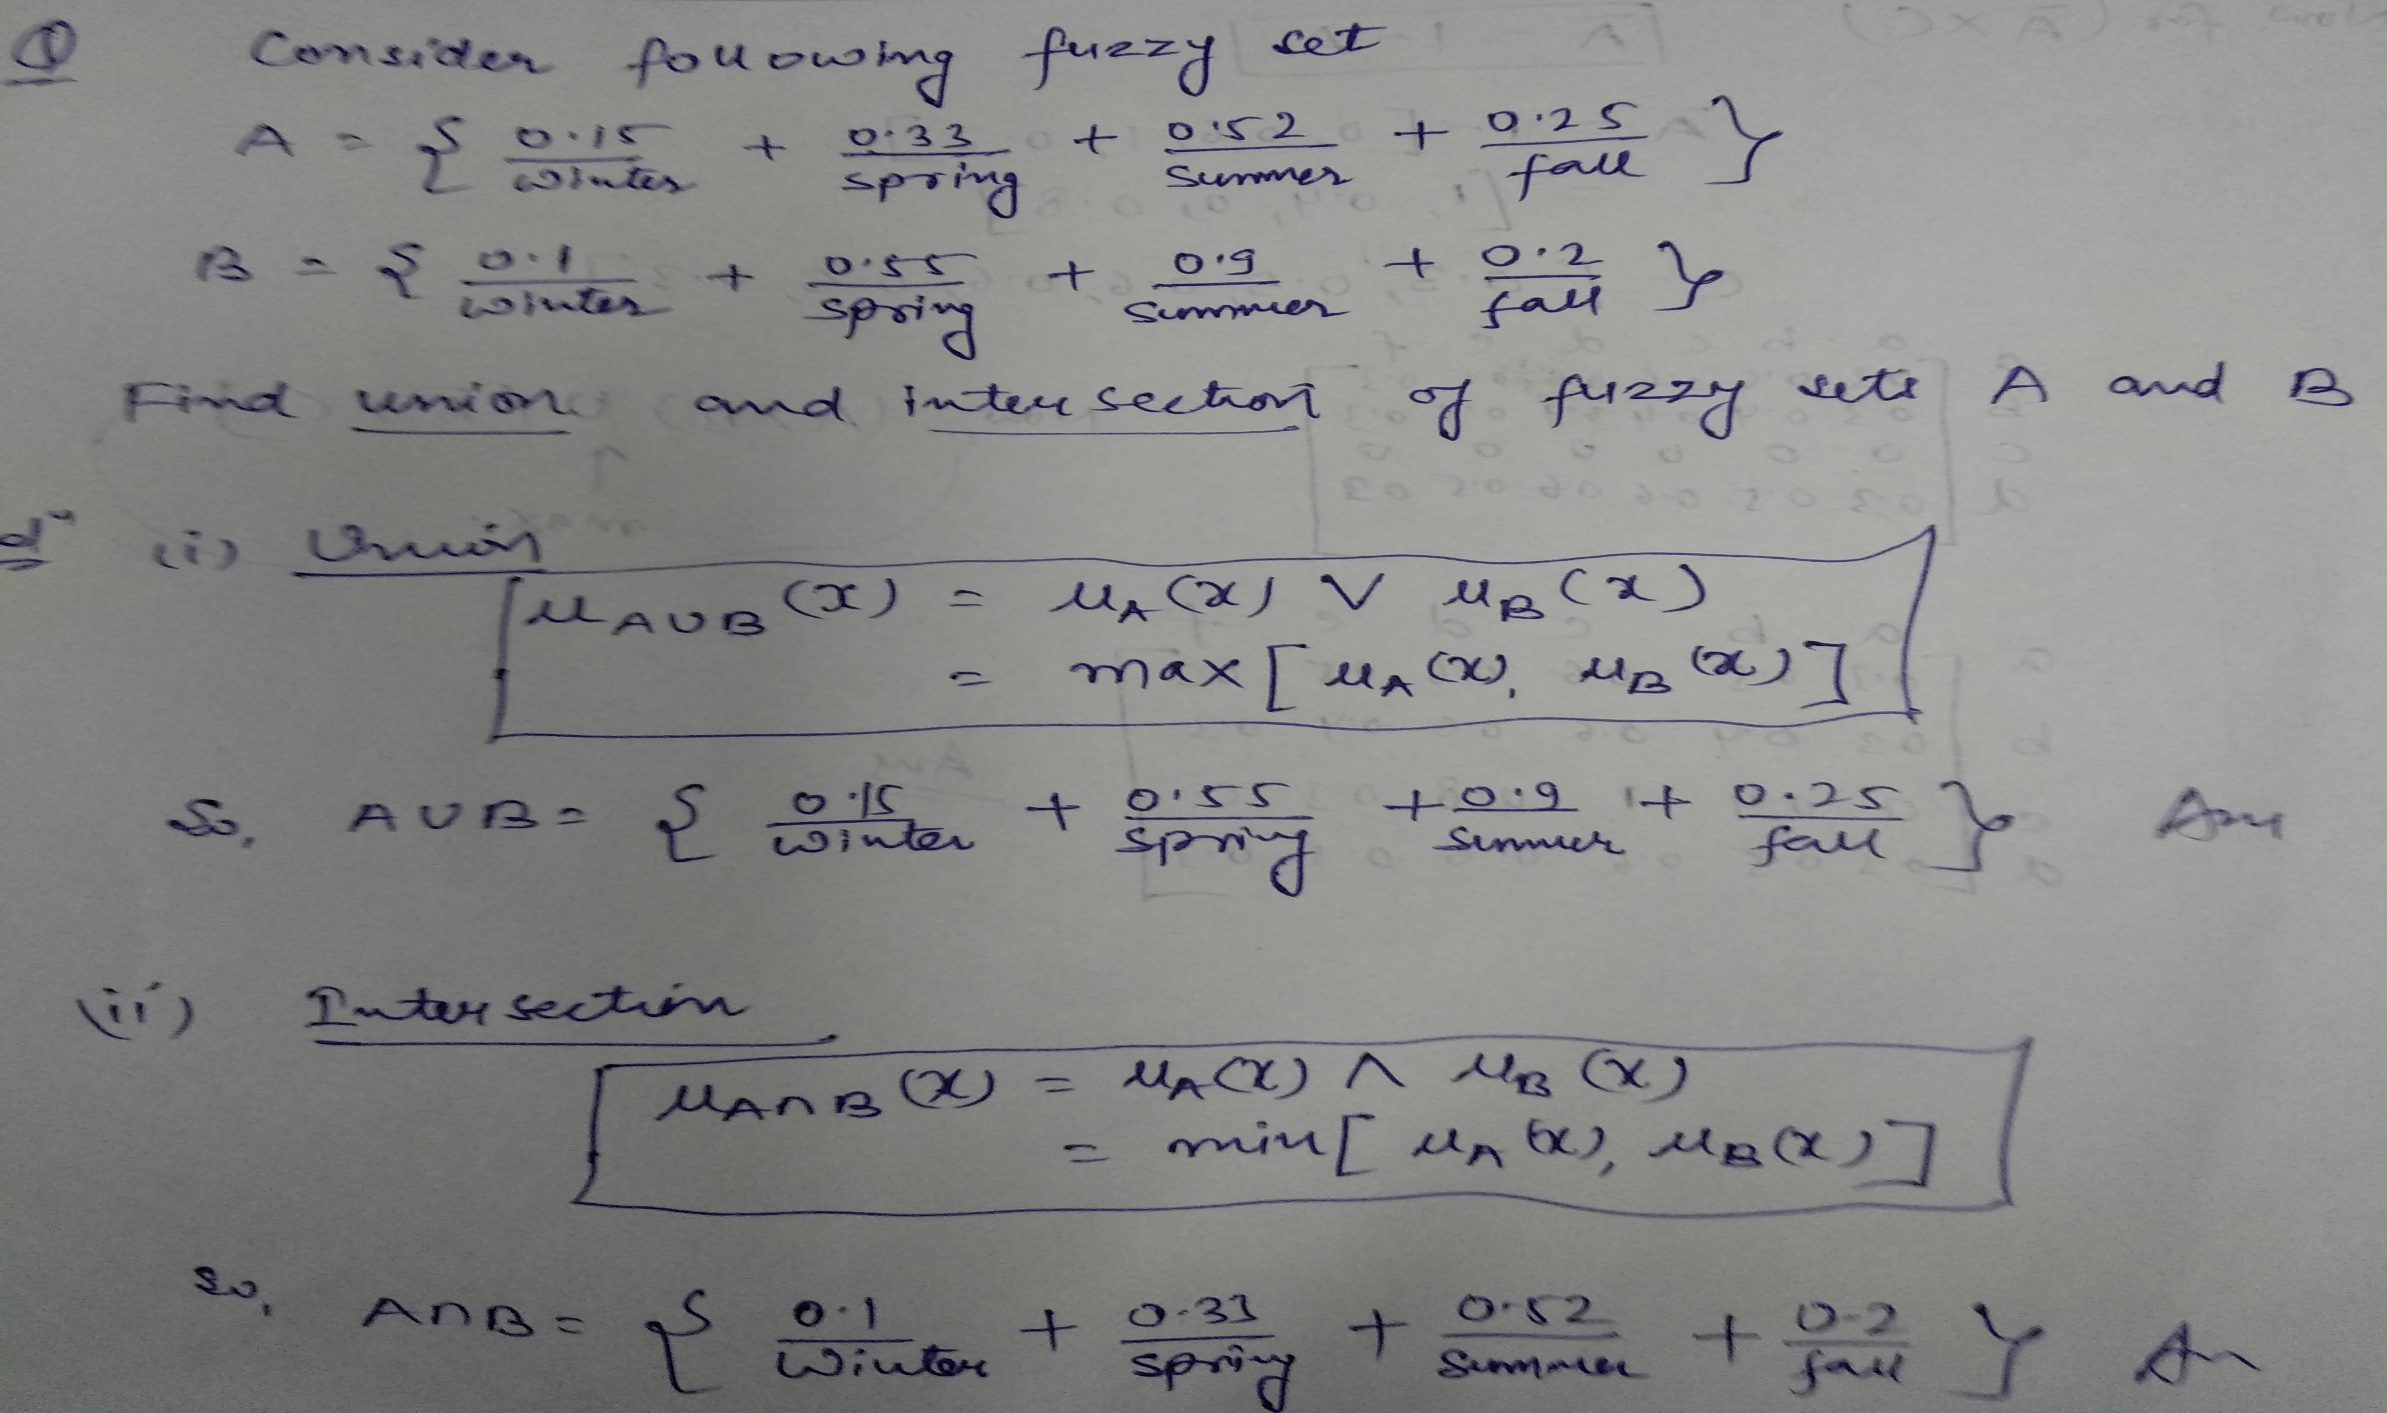 Q Consider following fuzzy set
A = { 0.15/Winter + 0.33/spring + 0.52/summer + 0.25/fall }
B = { 0.1/winter + 0.55/spring + 0.9/summer + 0.2/fall }
Find union and intersection of fuzzy sets A and B
(i) Union
μA∪B(x) = μA(x) ∨ μB(x)
= max[μA(x), μB(x)]
So, A∪B = { 0.15/winter + 0.55/spring + 0.9/summer + 0.25/fall } Ans
(ii) Intersection
μA∩B(x) = μA(x) ∧ μB(x)
= min[μA(x), μB(x)]
So, A∩B = { 0.1/Winter + 0.33/spring + 0.52/summer + 0.2/fall }